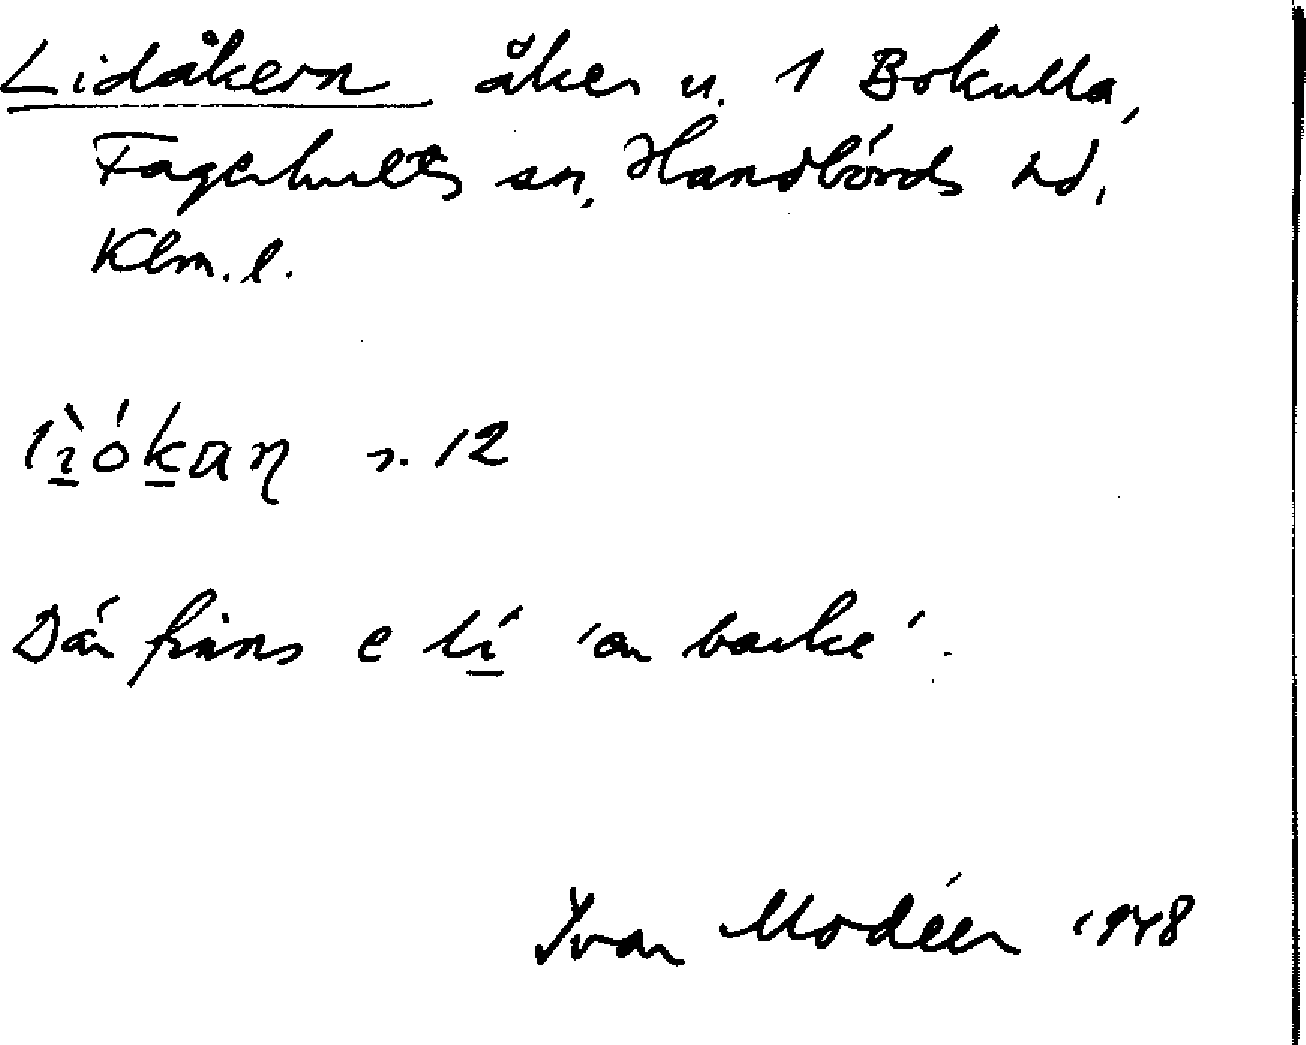 Lidåkern åker u. 1 Bokulla,
Fagerhults sn, Handbörds hd,
Klm. l.
lìókaŋ s. 12
Där finns e lí 'en backe'.
Ivar Modéer 1948